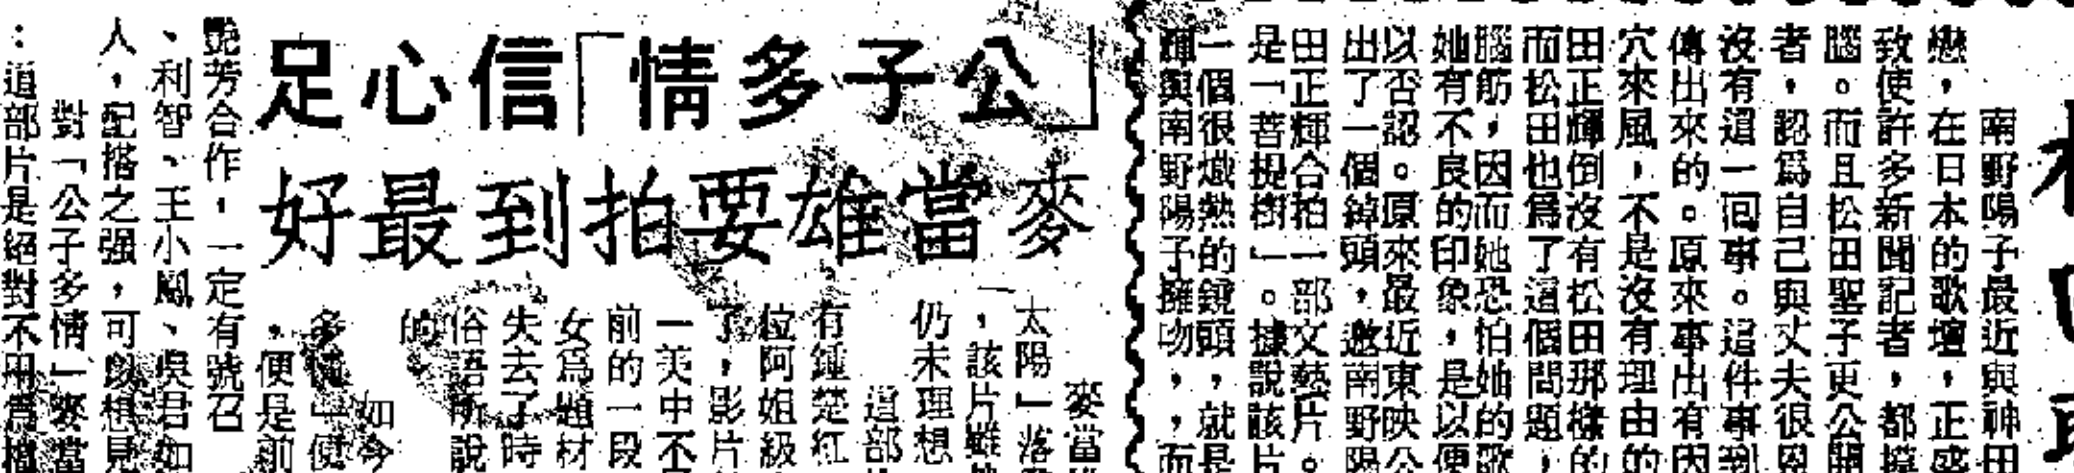 南野陽子最近與神田
戀，在日本的歌壇，正盛
致使許多新聞記者，都
腦。而且松田聖子更公開
者，認爲自己與丈夫很恩
沒有這一回事。這件事到
傳出來的。原來事出有因
穴來風，不是沒有理由的
田正輝倒沒有松田那樣的
而松田也爲了這個問題，
腦舫，因而她恐怕她的歌
她有不良的印象，是以便
以否認。原來最近東映公
出了一個綽頭，邀南野陽
田正輝合拍一部文藝片。
是「菩提樹」。據說該片
一個很熾熱的鏡頭，就是
輝與南野陽子擁吻，，而
「公子多情」信心足
麥當雄要拍到最好
麥當
太陽」落
，該片雖
仍未理想
這部
有鍾楚紅
位阿姐級
了，影片
一美中不
前的一段
女爲題材
失去了時
俗語所說
的
如今
多情」便
，便是前
艷芳合作，一定有號召
、利智、王小鳳、吳君如
人，配搭之强，可以想見
對「公子多情」麥當
：道部片是絕對不用爲